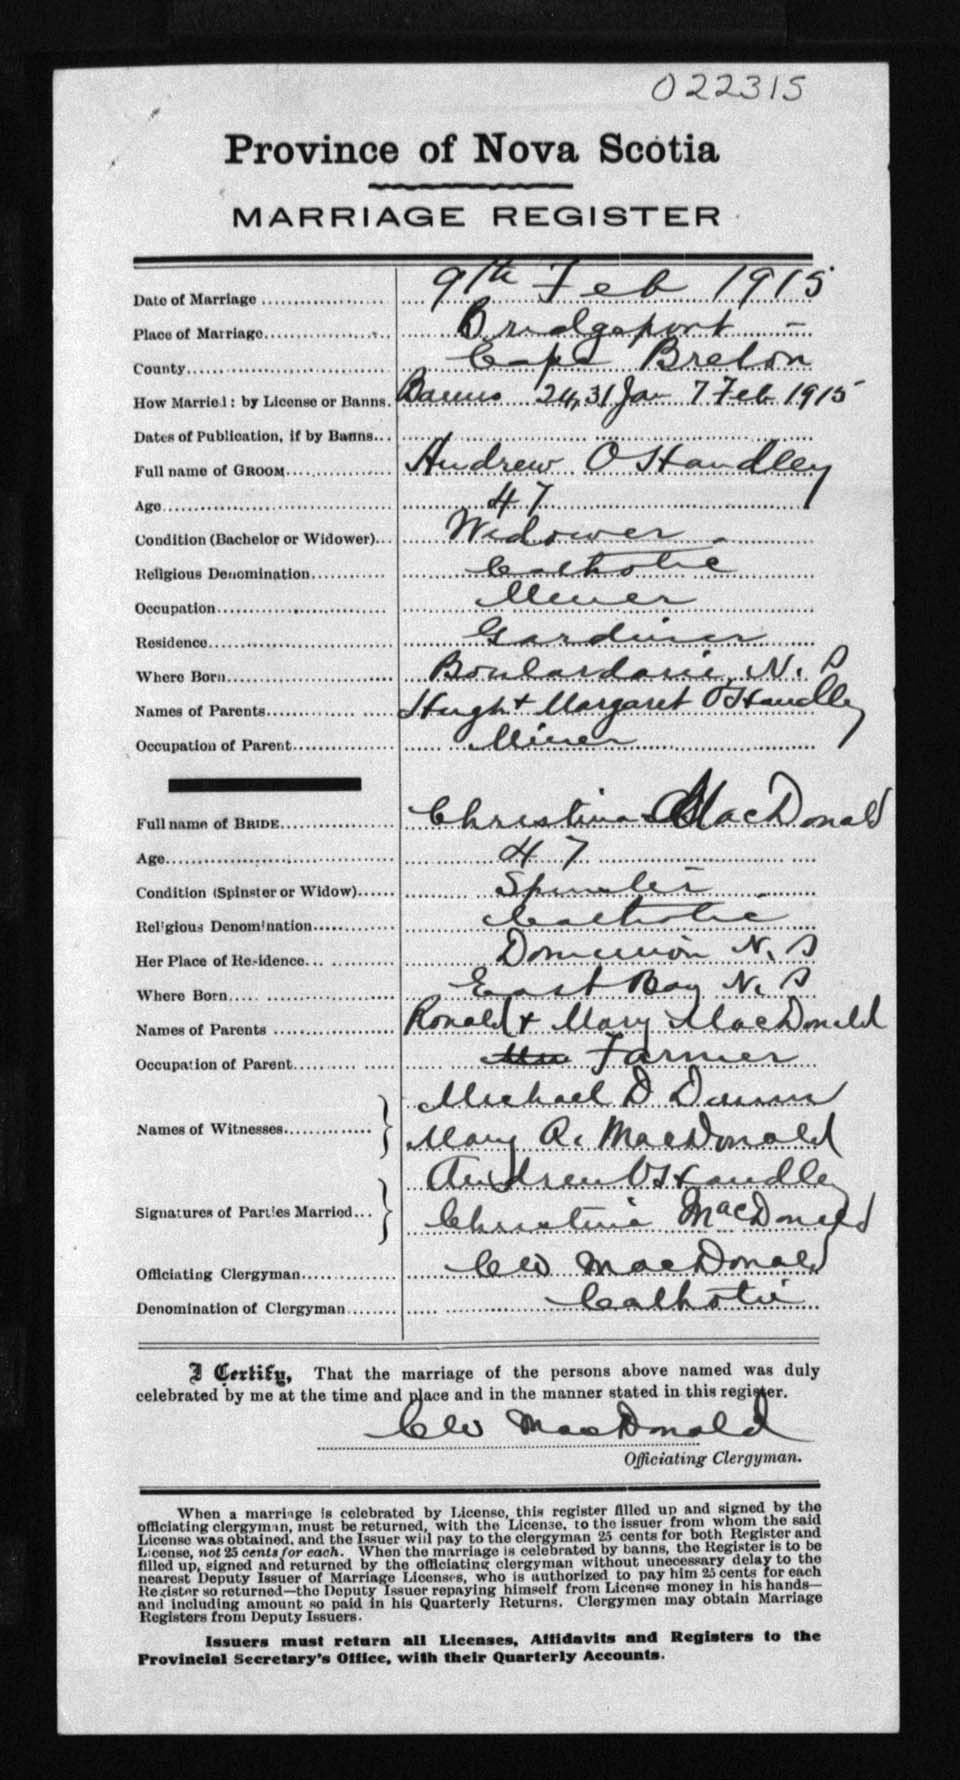 022315
Province of Nova Scotia
MARRIAGE REGISTER
Date of Marriage 9th Feb 1915
Place of Marriage Bridgeport -
County Cape Breton
How Married: by License or Banns. Banns 24, 31 Jan 7 Feb 1915
Dates of Publication, if by Banns
Full name of GROOM Andrew O'Handley
Age 47
Condition (Bachelor or Widower) Widower
Religious Denomination Catholic
Occupation Miner
Residence Gardiner
Where Born Boulardarie, N. S
Names of Parents Hugh + Margaret O'Handley
Occupation of Parent Miner
Full name of BRIDE Christina MacDonald
Age 47
Condition (Spinster or Widow) Spinster
Religious Denomination Catholic
Her Place of Residence Dominion N. S
Where Born East Bay N. S
Names of Parents Ronald + Mary MacDonald
Occupation of Parent Farmer
Michael D
Names of Witnesses Mary R. MacDonald
Andrew O'Handley
Signatures of Parties Married Christina MacDonald
Officiating Clergyman CW MacDonald
Denomination of Clergyman Catholic
I Certify, That the marriage of the persons above named was duly
celebrated by me at the time and place and in the manner stated in this register.
CW MacDonald
Officiating Clergyman.
When a marriage is celebrated by License, this register filled up and signed by the
officiating clergyman, must be returned, with the License, to the issuer from whom the said
License was obtained, and the Issuer will pay to the clergyman 25 cents for both Register and
License, not 25 cents for each. When the marriage is celebrated by banns, the Register is to be
filled up, signed and returned by the officiating clergyman without unecessary delay to the
nearest Deputy Issuer of Marriage Licenses, who is authorized to pay him 25 cents for each
Register so returned—the Deputy Issuer repaying himself from License money in his hands—
and including amount so paid in his Quarterly Returns. Clergymen may obtain Marriage
Registers from Deputy Issuers.
Issuers must return all Licenses, Affidavits and Registers to the
Provincial Secretary's Office, with their Quarterly Accounts.